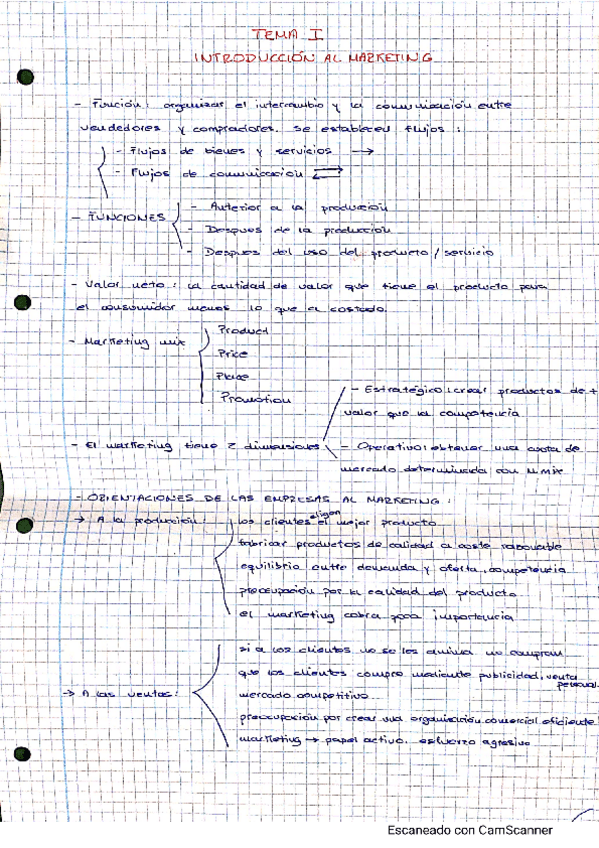 TEMA I
INTRODUCCIÓN AL MARKETING
- Función: organizar el intercambio y la comunicación entre
vendedores y compradores. Se establecen flujos :
- Flujos de bienes y servicios →
- Flujos de comunicación ⇄
- FUNCIONES
- Anterior a la producción
- Despues de la producción
- Despues del uso del producto / servicio
- Valor neto : la cantidad de valor que tiene el producto para
el consumidor menos lo que a costado.
- Marketing mix
Product
Price
Place
Promotion
- El marketing tiene 2 dimensiones
- Estratégico: crear productos de +
valor que la competencia
- Operativo: obtener una cuota de
mercado determinada con M.mix
- ORIENTACIONES DE LAS EMPRESAS AL MARKETING :
→ A la producción :
los clientes eligen el mejor producto
fabricar productos de calidad a coste razonable
equilibrio entre demanda y oferta, competencia
preocupación por la calidad del producto
el marketing cobra poca importancia
→ A las ventas :
si a los clientes no se les anima no compran
que los clientes compre mediante publicidad, venta personal.
mercado competitivo
preocupación por crear una organización comercial eficiente
marketing → papel activo, esfuerzo agresivo
Escaneado con CamScanner